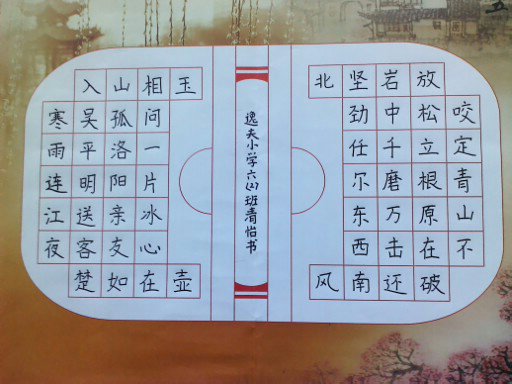 寒雨连江夜
入吴平明送客楚
山孤洛阳亲友如
相问一片冰心在
玉壶
逸夫小学六(2)班青怡书
咬定青山不
放松立根原在破
岩中千磨万击还
坚劲任尔东西南
北风